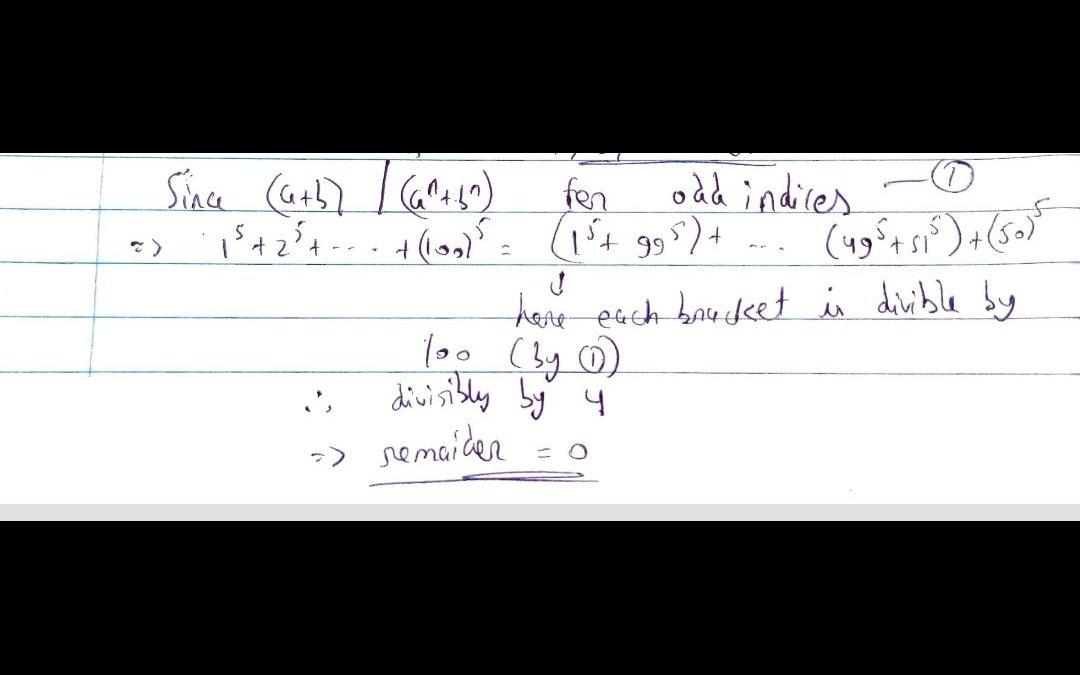 Since (a+b) | (aⁿ+bⁿ) for odd indices —①
=> 1⁵+2⁵+---.+(100)⁵ = (1⁵+ 99⁵)+ ... (49⁵+51⁵)+(50)⁵
↓
here each bracket is divible by
100 (by ①)
∴ divisibly by 4
=> remaider = 0